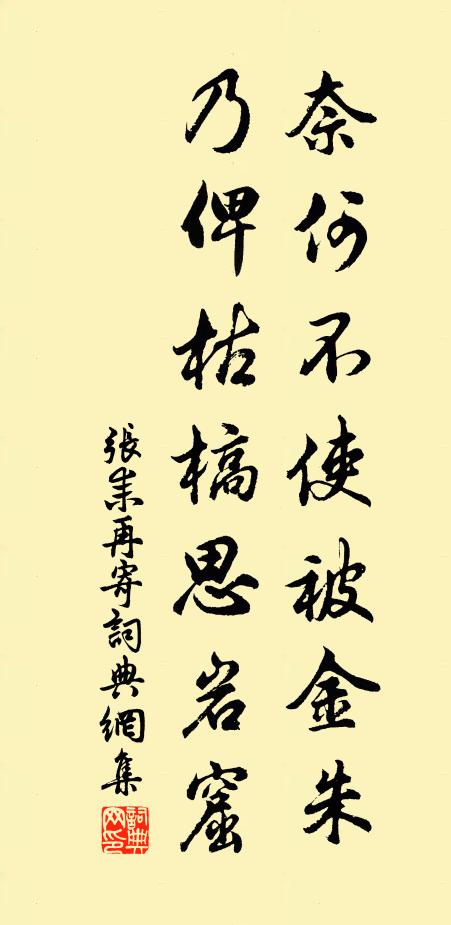 奈何不使被金朱
乃俾枯槁思岩窟
張耒再寄詞典網集
詞典网印